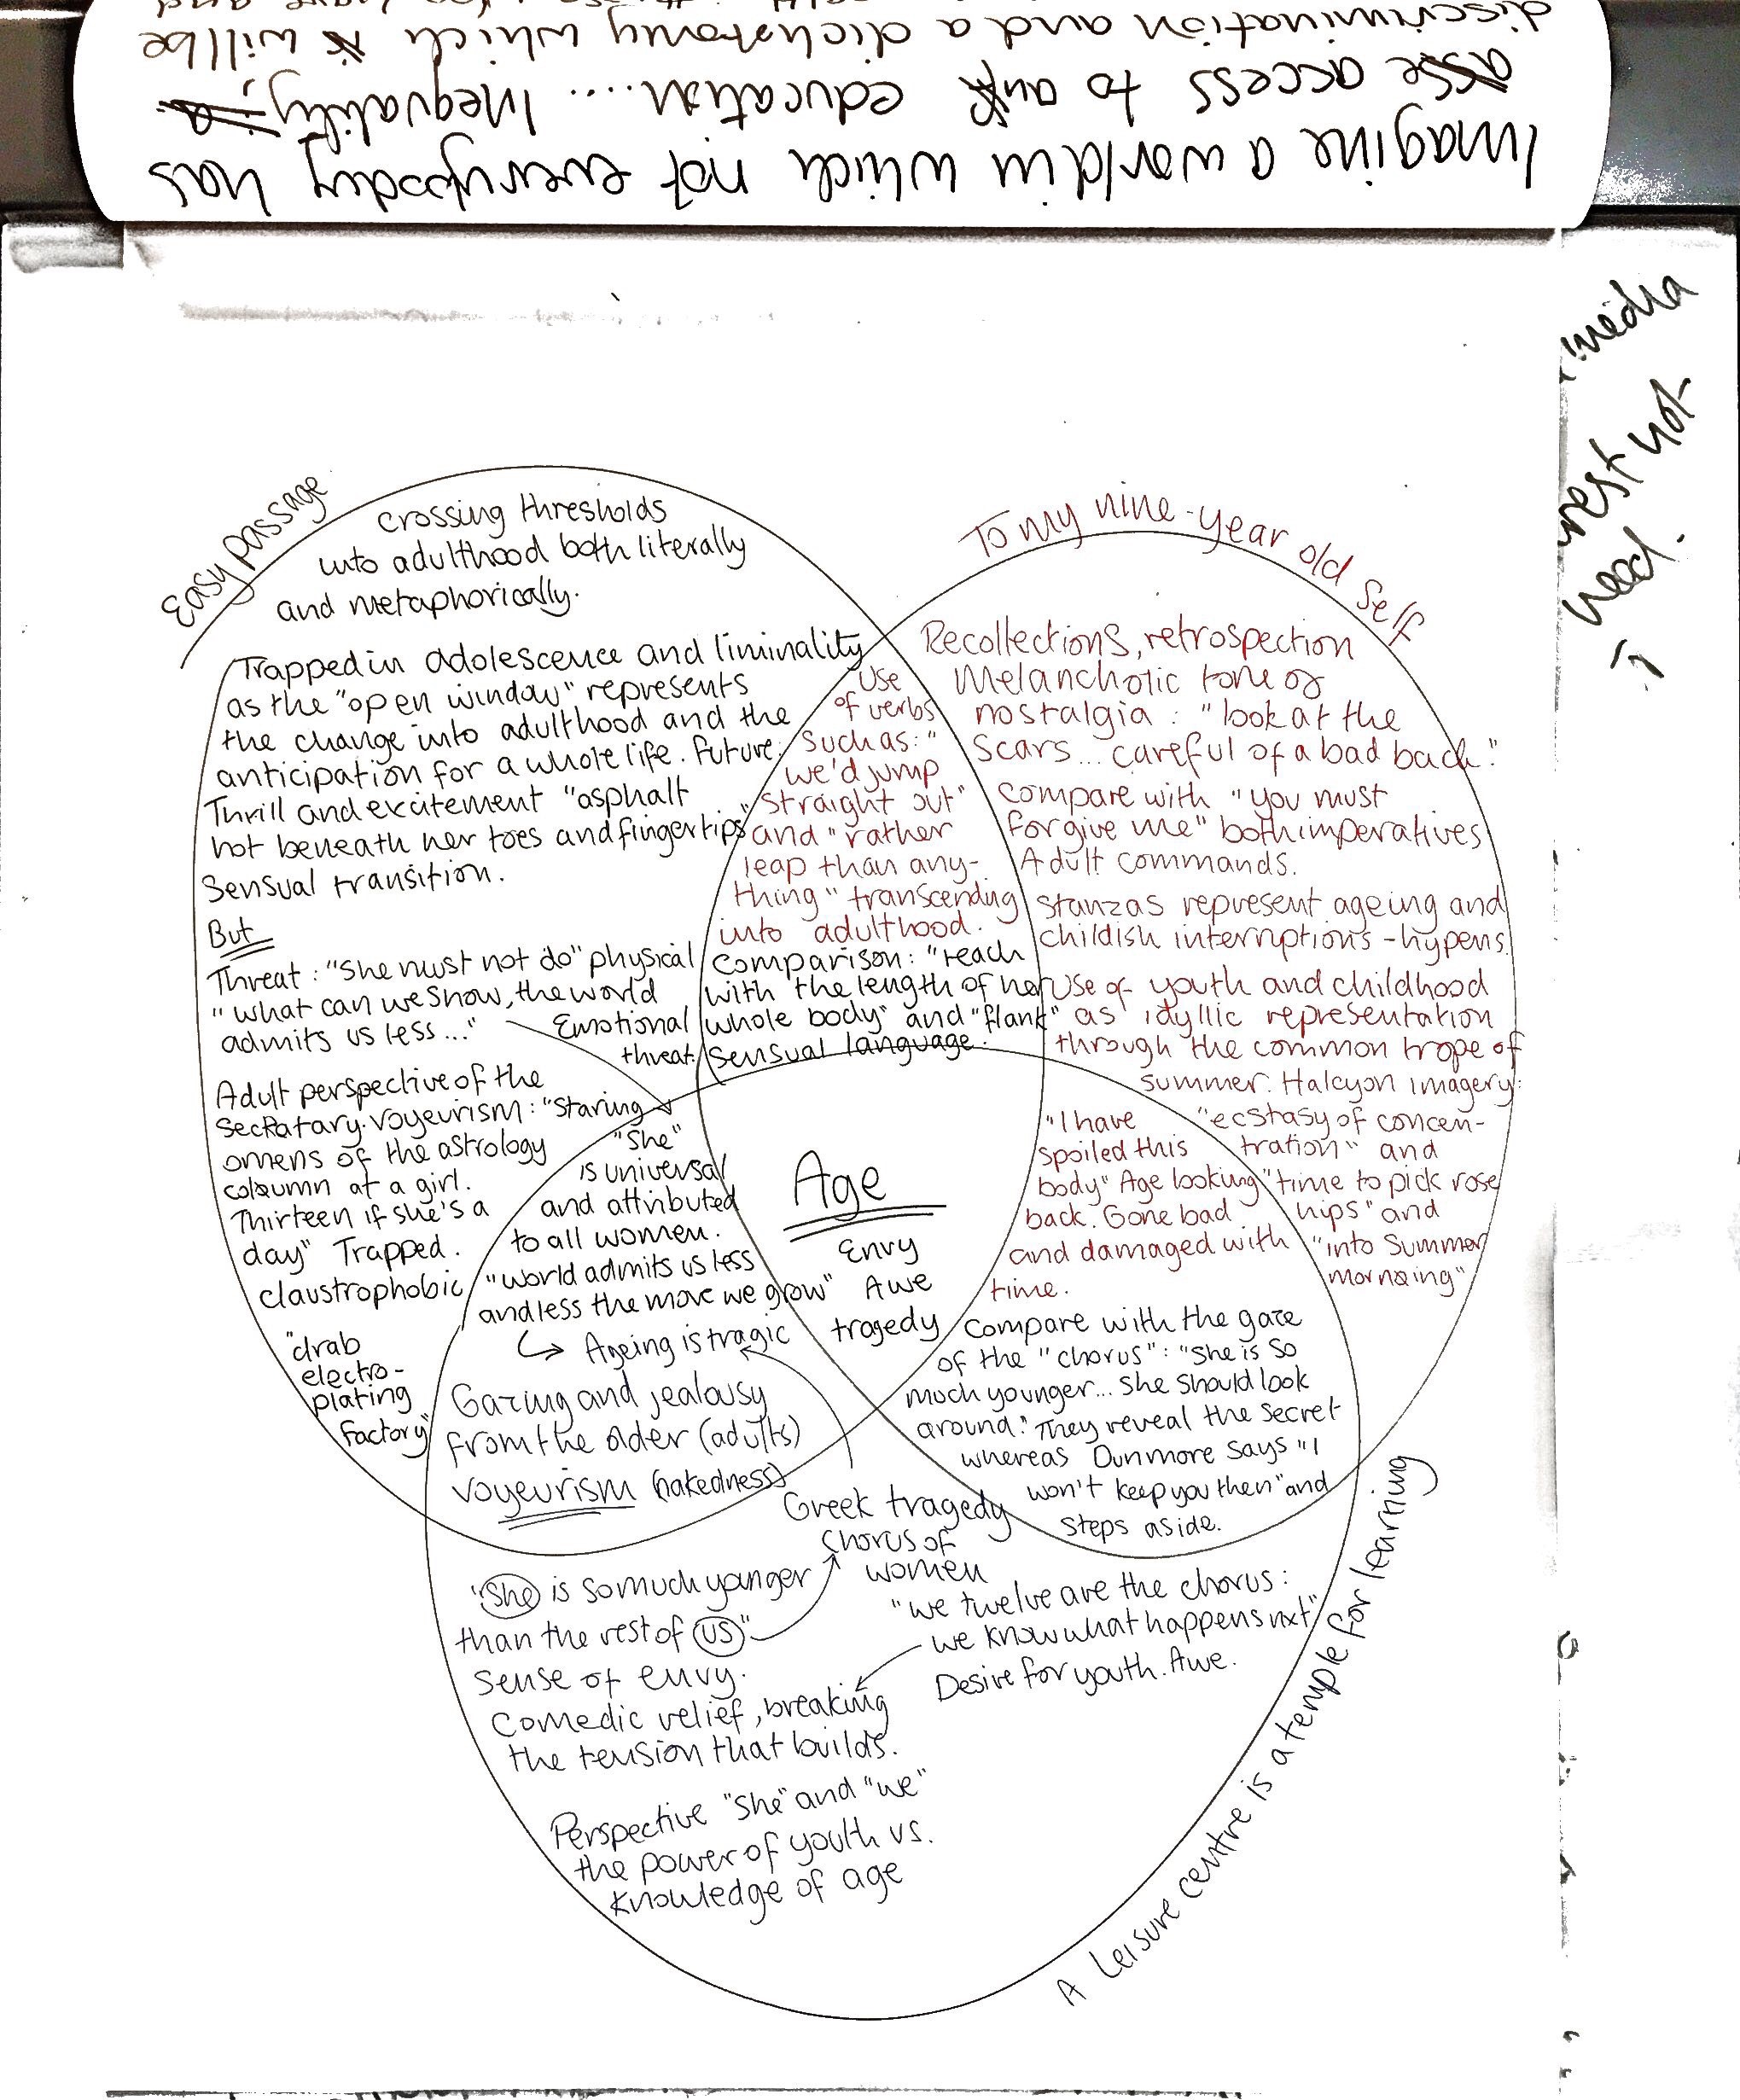 Imagine a world in which not everybody has
access to education.... Inequality,
discrimination and a dichotomy which will be
media
not
need.
Easy passage
crossing thresholds
into adulthood both literally
and metaphorically.
Trapped in adolescence and liminality
as the "open window" represents
the change into adulthood and the
anticipation for a whole life. Future.
Thrill and excitement "asphalt
hot beneath her toes and fingertips"
Sensual transition.
But
Threat: "She must not do" physical
"What can we know, the world
admits us less..."
Emotional
threat
Adult perspective of the
secratary. Voyeurism: "Staring
omens of the astrology
coloumn at a girl.
Thirteen if she's a
day" Trapped.
claustrophobic
"drab
electro-
plating
factory"
To my nine-year old self
Recollections, retrospection
Melancholic tone of
nostalgia: "look at the
scars... careful of a bad back."
Compare with "you must
forgive me" both imperatives
Adult commands.
Stanzas represent ageing and
childish interruptions - hypens
Use of youth and childhood
as idyllic representation
through the common trope of
summer. Halcyon imagery:
"ecstasy of concen-
tration" and
"time to pick rose
hips" and
"into Summer
morning"
Use
of verbs
such as: "
we'd jump
straight out"
and "rather
leap than any-
thing" transcending
into adulthood.
Comparison: "reach
with the length of her
whole body" and "flank"
sensual language.
"I have
spoiled this
body" Age looking
back. Gone bad
and damaged with
time.
Compare with the gaze
of the "chorus": "She is so
much younger... She should look
around." They reveal the secret
whereas Dunmore says "I
won't keep you then" and
steps aside.
"She"
is universal
and attributed
to all women.
"world admits us less
and less the more we grow"
↳ Ageing is tragic
Gazing and jealousy
from the older (adults)
voyeurism (nakedness)
Age
Envy
Awe
tragedy
Greek tragedy
chorus of
women
"She is so much younger
than the rest of us"
sense of envy.
Comedic relief, breaking
the tension that builds.
Perspective "She" and "we"
the power of youth vs.
knowledge of age
"we twelve are the chorus:
we know what happens nxt"
Desire for youth. Awe.
A Leisure centre is a temple for learing